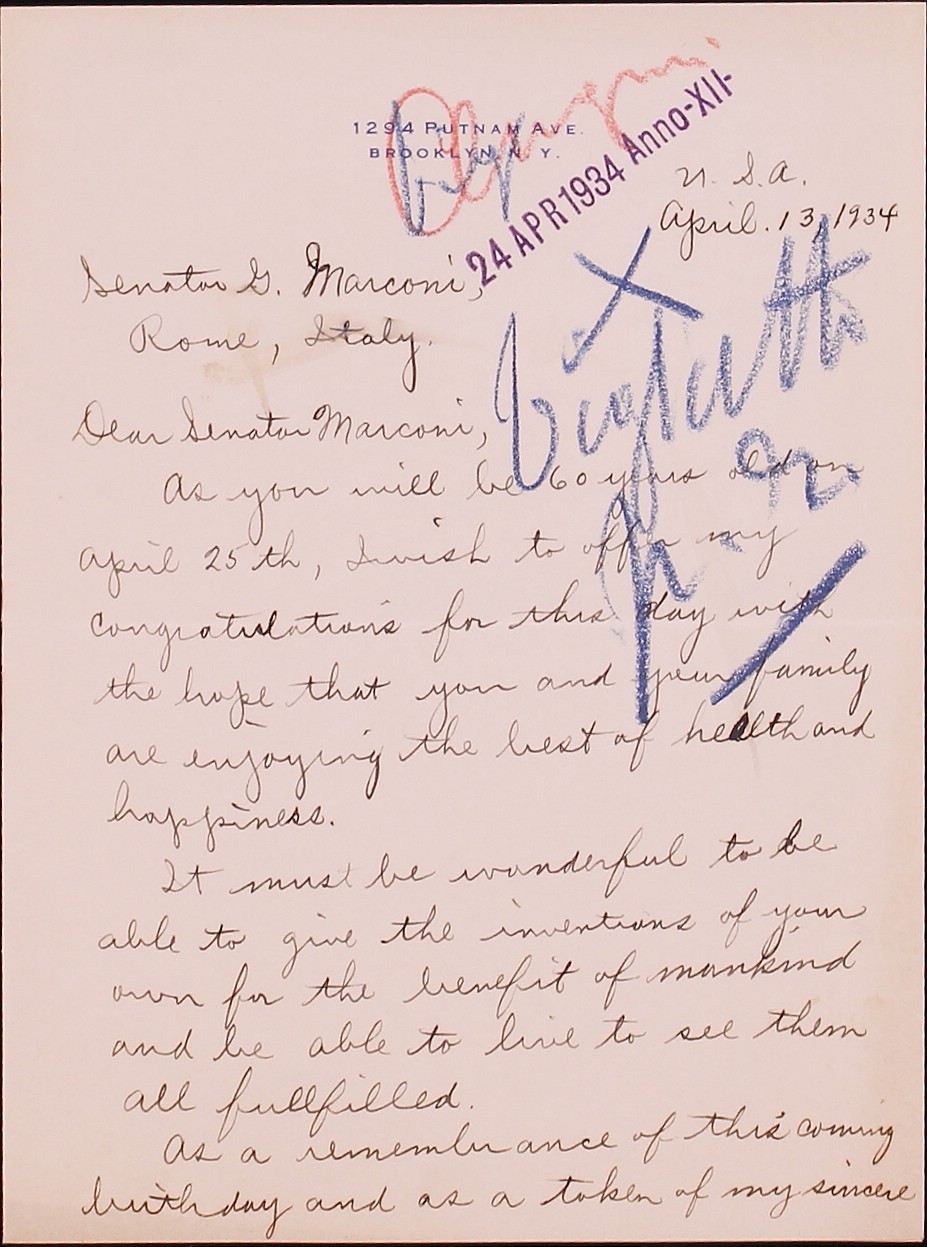 1294 PUTNAM AVE.
BROOKLYN N. Y.
24 APR 1934 Anno-XII-
U. S. A.
April. 13, 1934
Senator G. Marconi,
Rome, Italy.
Dear Senator Marconi,
As you will be 60 years old on
April 25th, I wish to offer my
congratulations for this day with
the hope that you and your family
are enjoying the best of health and
happiness.
It must be wonderful to be
able to give the inventions of your
own for the benefit of mankind
and be able to live to see them
all fullfilled.
As a remembrance of this coming
birthday and as a token of my sincere